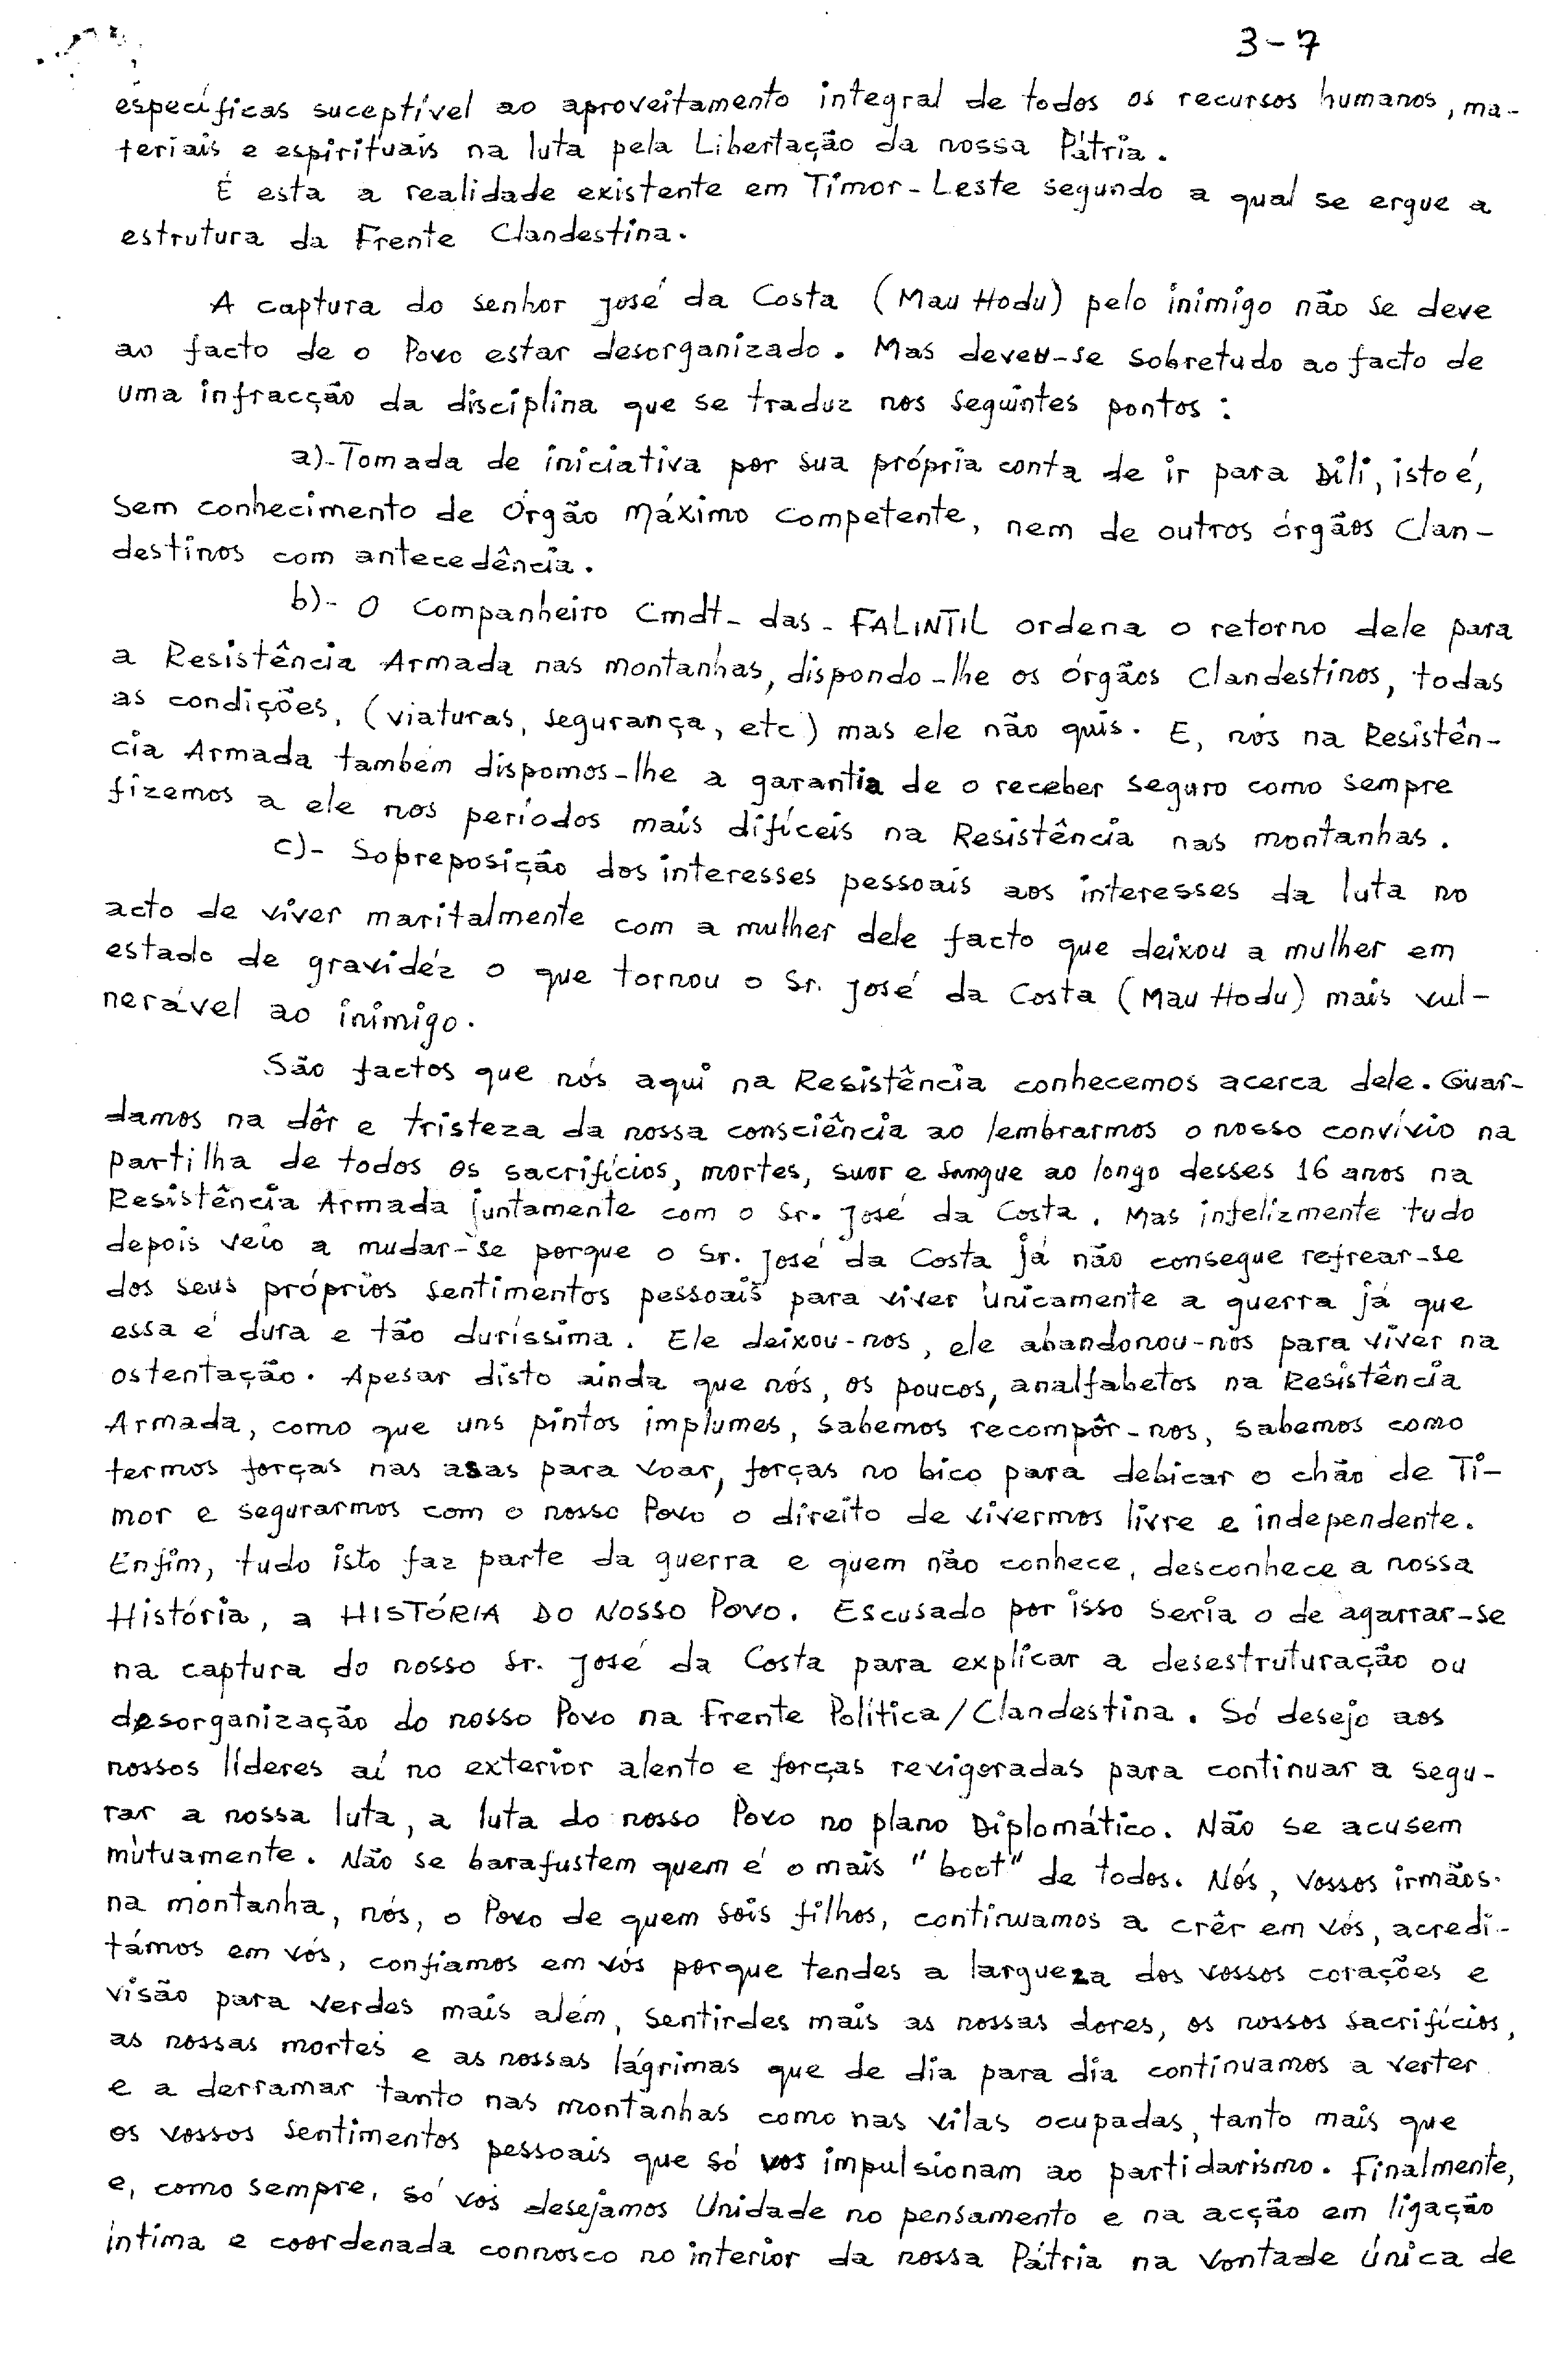 3-7
específicas suceptível ao aproveitamento integral de todos os recursos humanos, ma-
teriais e espirituais na luta pela Libertação da nossa Pátria.
É esta a realidade existente em Timor-Leste segundo a qual se ergue a
estrutura da Frente Clandestina.
A captura do senhor José da Costa (Mau Hodu) pelo inimigo não se deve
ao facto de o Povo estar desorganizado. Mas deveu-se sobretudo ao facto de
uma infracção da disciplina que se traduz nos seguintes pontos:
a)-Tomada de iniciativa por sua própria conta de ir para Dili, isto é,
sem conhecimento de Órgão Máximo competente, nem de outros órgãos Clan-
destinos com antecedência.
b)- O Companheiro Cmdt-das-FALINTIL ordena o retorno dele para
a Resistência Armada nas montanhas, dispondo-lhe os órgãos Clandestinos, todas
as condições, (viaturas, segurança, etc) mas ele não quis. E, nós na Resistên-
cia Armada também dispomos-lhe a garantia de o receber seguro como sempre
fizemos a ele nos períodos mais difíceis na Resistência nas montanhas.
c)- Sobreposição dos interesses pessoais aos interesses da luta no
acto de viver maritalmente com a mulher dele facto que deixou a mulher em
estado de gravidéz o que tornou o Sr. José da Costa (Mau Hodu) mais vul-
nerável ao inimigo.
São factos que nós aqui na Resistência conhecemos acerca dele. Guar-
damos na dôr e tristeza da nossa consciência ao lembrarmos o nosso convívio na
partilha de todos os sacrifícios, mortes, suor e sangue ao longo desses 16 anos na
Resistência Armada juntamente com o Sr. José da Costa. Mas infelizmente tudo
depois veio a mudar-se porque o Sr. José da Costa já não consegue refrear-se
dos seus próprios sentimentos pessoais para viver únicamente a guerra já que
essa é dura e tão duríssima. Ele deixou-nos, ele abandonou-nos para viver na
ostentação. Apesar disto ainda que nós, os poucos, analfabetos na Resistência
Armada, como que uns pintos implumes, sabemos recompôr-nos, sabemos como
termos forças nas asas para voar, forças no bico para debicar o chão de Ti-
mor e segurarmos com o nosso Povo o direito de vivermos livre e independente.
Enfim, tudo isto faz parte da guerra e quem não conhece, desconhece a nossa
História, a HISTÓRIA DO NOSSO POVO. Escusado por isso seria o de agarrar-se
na captura do nosso Sr. José da Costa para explicar a desestruturação ou
desorganização do nosso Povo na Frente Política/Clandestina. Só desejo aos
nossos líderes aí no exterior alento e forças revigoradas para continuar a segu-
rar a nossa luta, a luta do nosso Povo no plano Diplomático. Não se acusem
mùtuamente. Não se barafustem quem é o mais "boot" de todos. Nós, vossos irmãos
na montanha, nós, o Povo de quem sois filhos, continuamos a crêr em vós, acredi-
támos em vós, confiamos em vós porque tendes a largueza dos vossos corações e
visão para verdes mais além, sentirdes mais as nossas dores, os nossos sacrifícios,
as nossas mortes e as nossas lágrimas que de dia para dia continuamos a verter
e a derramar tanto nas montanhas como nas vilas ocupadas, tanto mais que
os vossos sentimentos pessoais que só vos impulsionam ao partidarismo. Finalmente,
e, como sempre, só vós desejamos Unidade no pensamento e na acção em ligação
íntima e coordenada connosco no interior da nossa Pátria na vontade única de